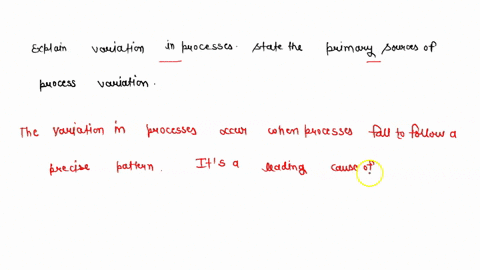 Explain variation in processes. state the primary sources of
process variation.
The variation in processes occur when processes fall to follow a
precise pattern. It's a leading cause of